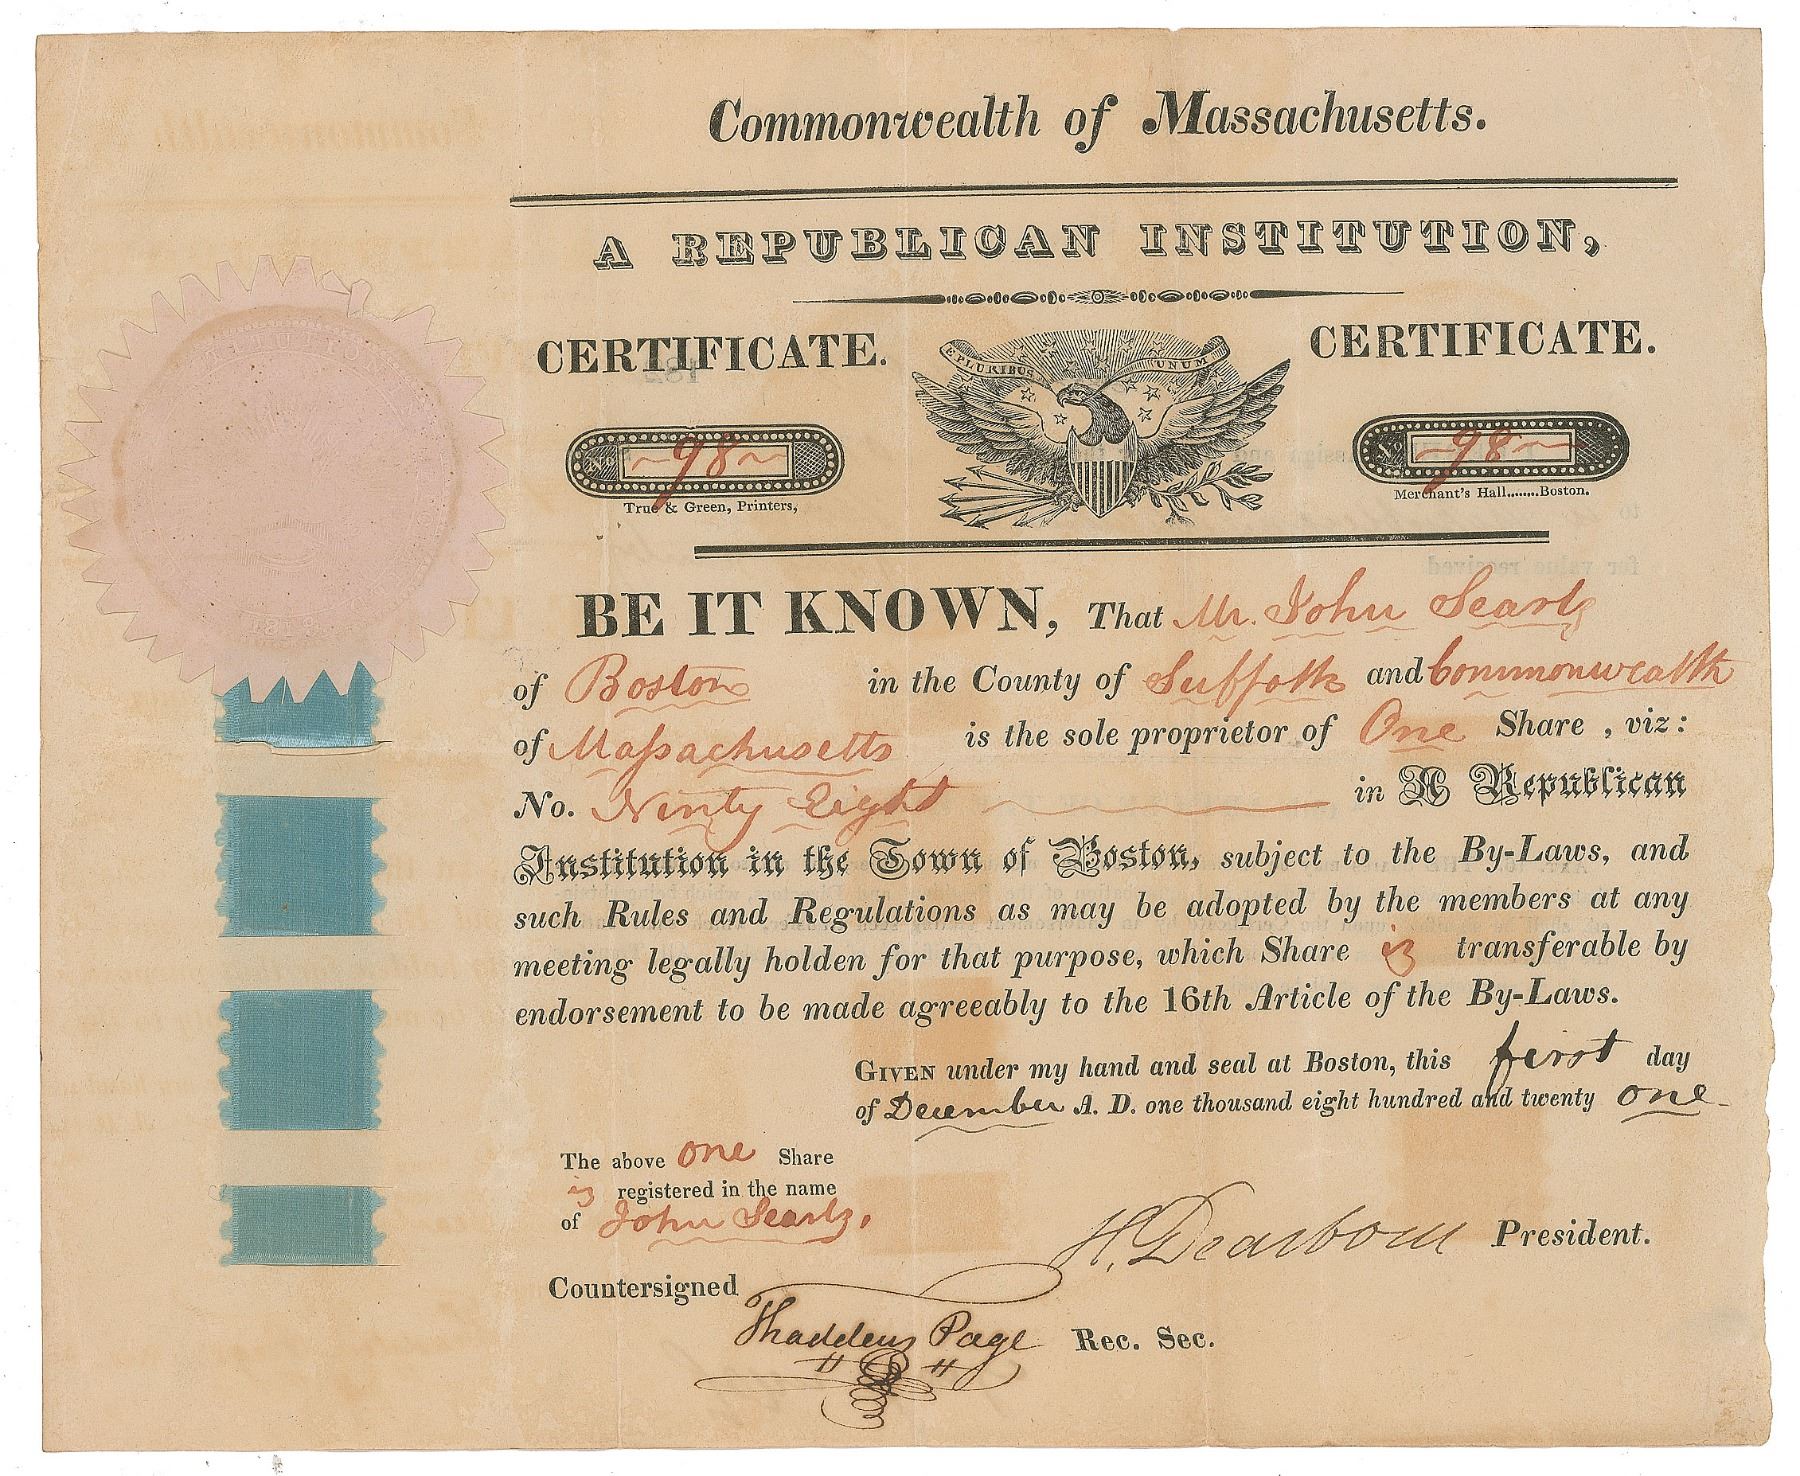 Commonwealth of Massachusetts.
A REPUBLICAN INSTITUTION,
CERTIFICATE.
E PLURIBUS UNUM
CERTIFICATE.
No 98
No 98
True & Green, Printers,
Merchant's Hall........Boston.
BE IT KNOWN, That Mr. John Searls
of Boston in the County of Suffolk and Commonwealth
of Massachusetts is the sole proprietor of One Share , viz:
No. Ninty Eight in A Republican
Institution in the Town of Boston, subject to the By-Laws, and
such Rules and Regulations as may be adopted by the members at any
meeting legally holden for that purpose, which Share is transferable by
endorsement to be made agreeably to the 16th Article of the By-Laws.
GIVEN under my hand and seal at Boston, this first day
of December A. D. one thousand eight hundred and twenty one
The above one Share
is registered in the name
of John Searls.
H. Dearborn President.
Countersigned
Thaddeus Page Rec. Sec.